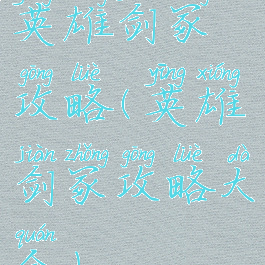 英雄剑冢
gōng lüè yīng xióng
攻略(英雄
jiàn zhǒng gōng lüè dà
剑冢攻略大
quán
全)